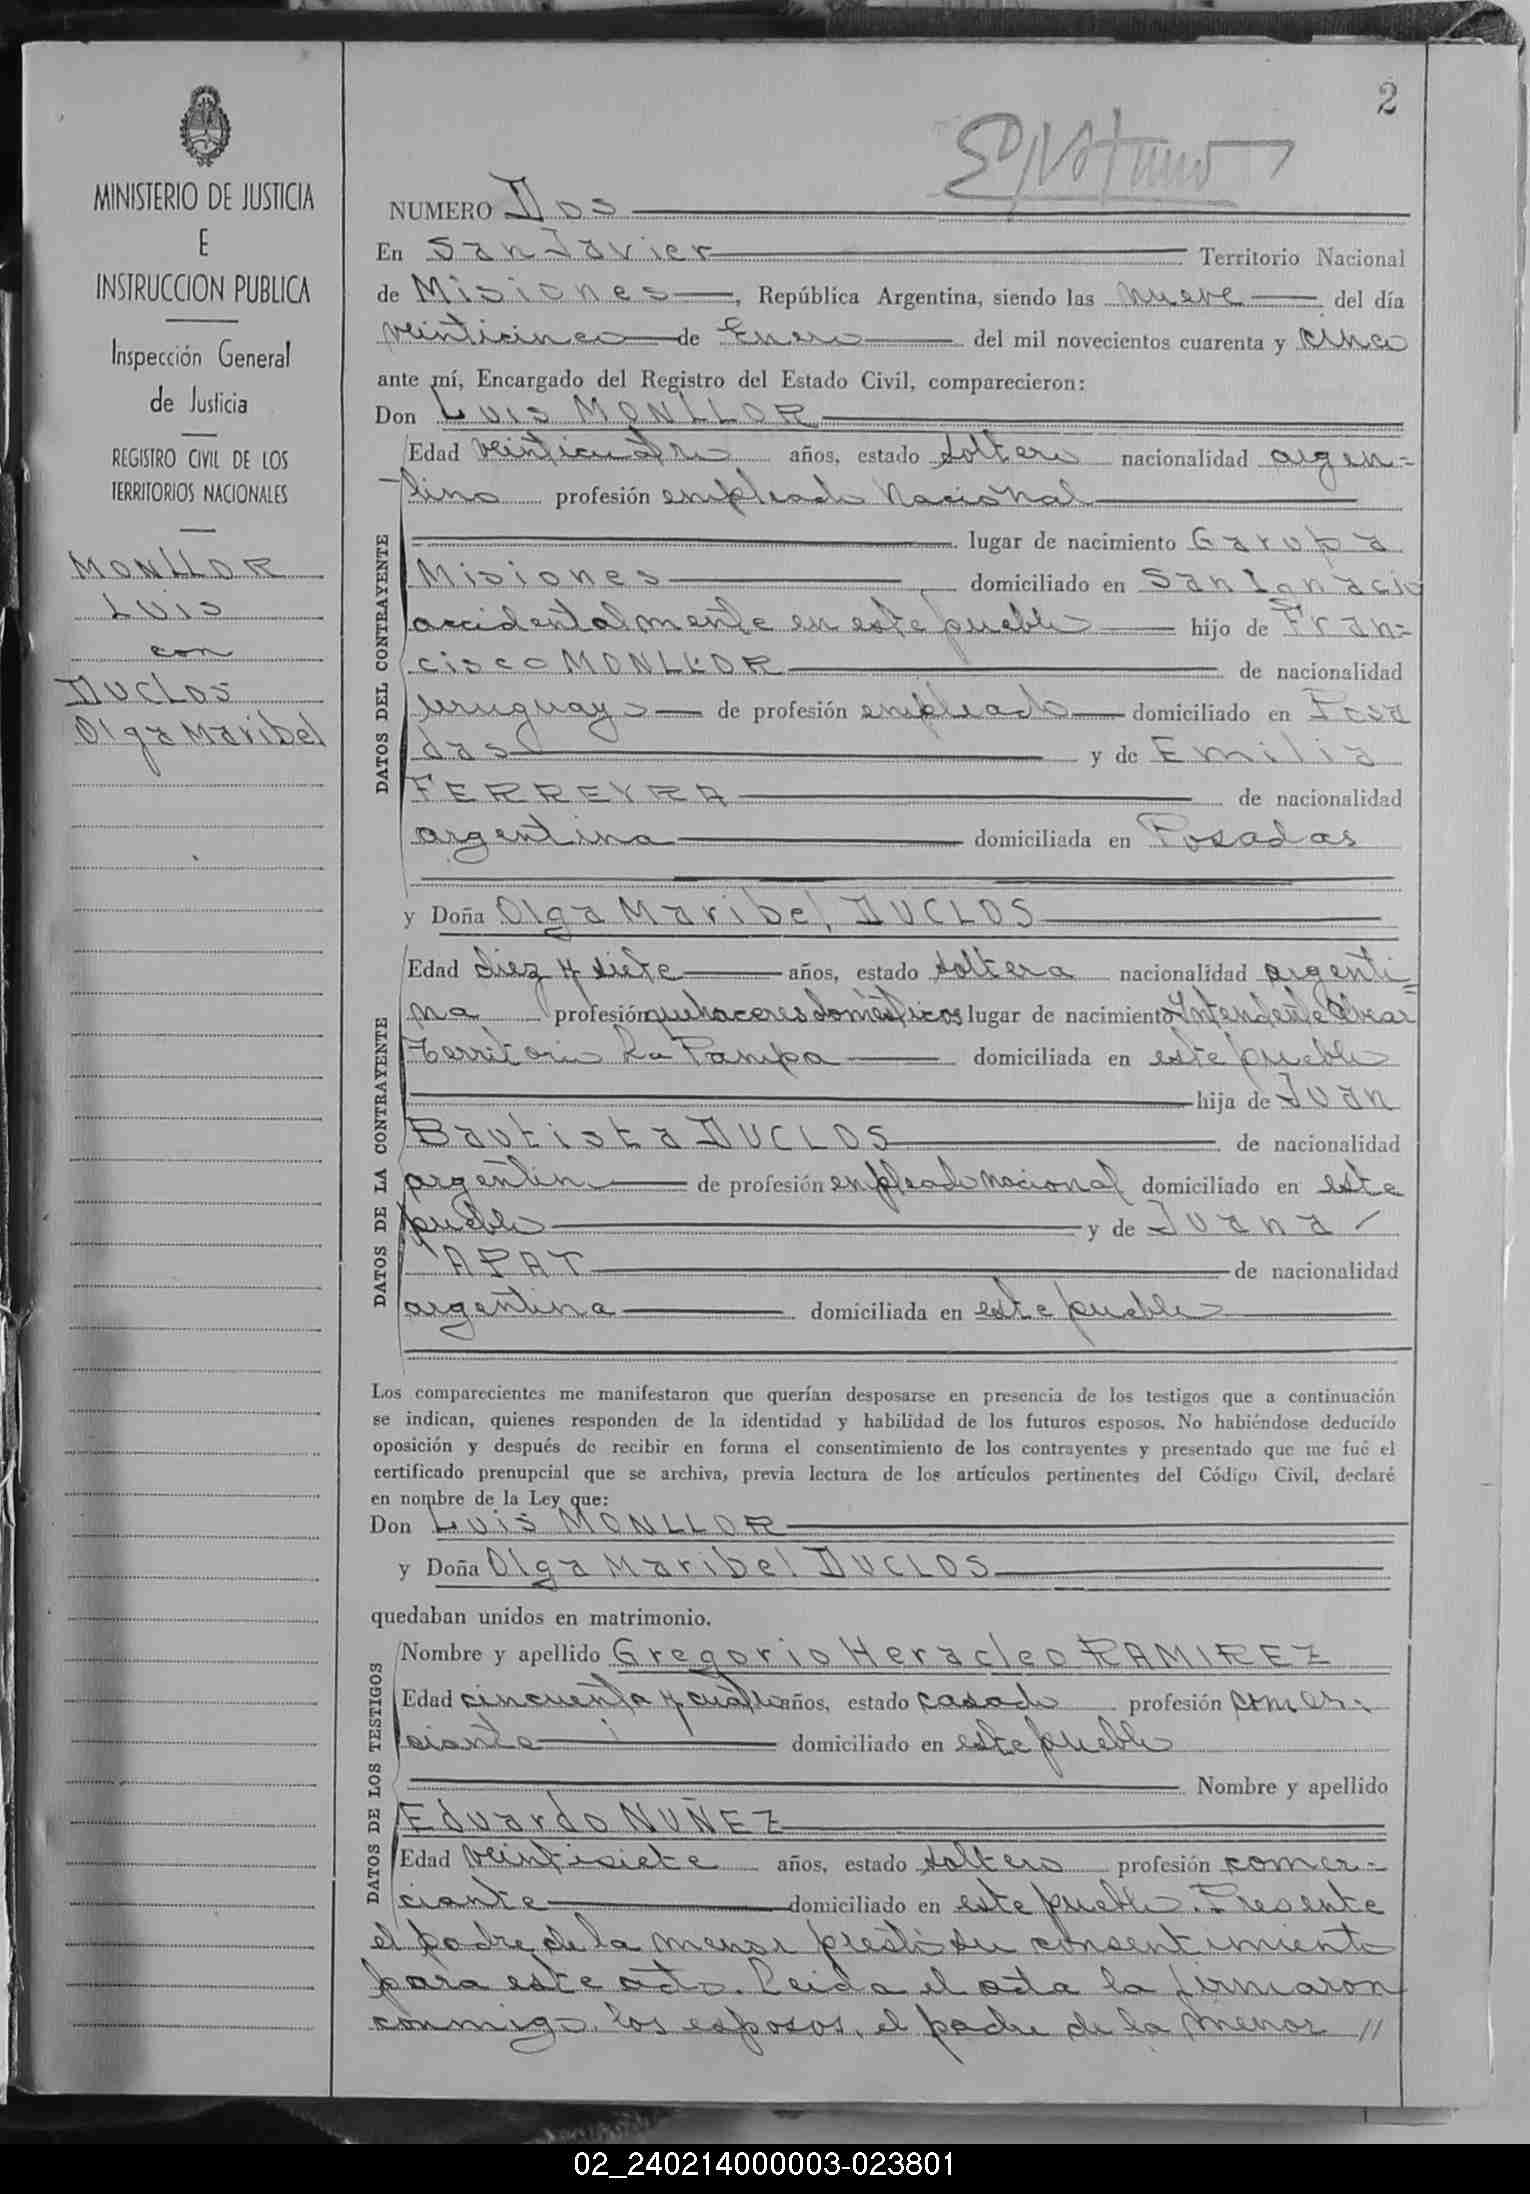 2
MINISTERIO DE JUSTICIA
E
INSTRUCCION PUBLICA
Inspección General
de Justicia
REGISTRO CIVIL DE LOS
TERRITORIOS NACIONALES
MONLLOR
LUIS
con
DUCLOS
Olga Maribel
NUMERO Dos
En San Javier Territorio Nacional
de Misiones, República Argentina, siendo las nueve del día
veinticinco de Enero del mil novecientos cuarenta y cinco
ante mí, Encargado del Registro del Estado Civil, comparecieron:
Don Luis MONLLOR
DATOS DEL CONTRAYENTE
Edad veinticuatro años, estado soltero nacionalidad argen-
tino profesión empleado Nacional
lugar de nacimiento Garupa
Misiones domiciliado en San Ignacio
accidentalmente en este pueblo hijo de Fran-
cisco MONLLOR de nacionalidad
uruguayo de profesión empleado domiciliado en Posa
das y de Emilia
FERREYRA de nacionalidad
argentina domiciliada en Posadas
y Doña Olga Maribel DUCLOS
DATOS DE LA CONTRAYENTE
Edad diez y siete años, estado soltera nacionalidad argenti=
na profesión quehaceres domésticos lugar de nacimiento Intendente Alvear
Territorio La Pampa domiciliada en este pueblo
hija de Juan
Bautista DUCLOS de nacionalidad
argentino de profesión empleado nacional domiciliado en este
pueblo y de Juana
APAT de nacionalidad
argentina domiciliada en este pueblo
Los comparecientes me manifestaron que querían desposarse en presencia de los testigos que a continuación
se indican, quienes responden de la identidad y habilidad de los futuros esposos. No habiéndose deducido
oposición y después de recibir en forma el consentimiento de los contrayentes y presentado que me fué el
certificado prenupcial que se archiva, previa lectura de los artículos pertinentes del Código Civil, declaré
en nombre de la Ley que:
Don Luis MONLLOR
y Doña Olga Maribel DUCLOS
quedaban unidos en matrimonio.
DATOS DE LOS TESTIGOS
Nombre y apellido Gregorio Heracleo RAMIREZ
Edad cincuenta y cuatro años, estado casado profesión comer-
ciante domiciliado en este pueblo
Nombre y apellido
Eduardo NUÑEZ
Edad veintisiete años, estado soltero profesión comer-
ciante domiciliado en este pueblo. Presente
el padre de la menor prestó su consentimiento
para este acto. Leida el acta la firmaron
conmigo, los esposos, el padre de la menor //
02_240214000003-023801